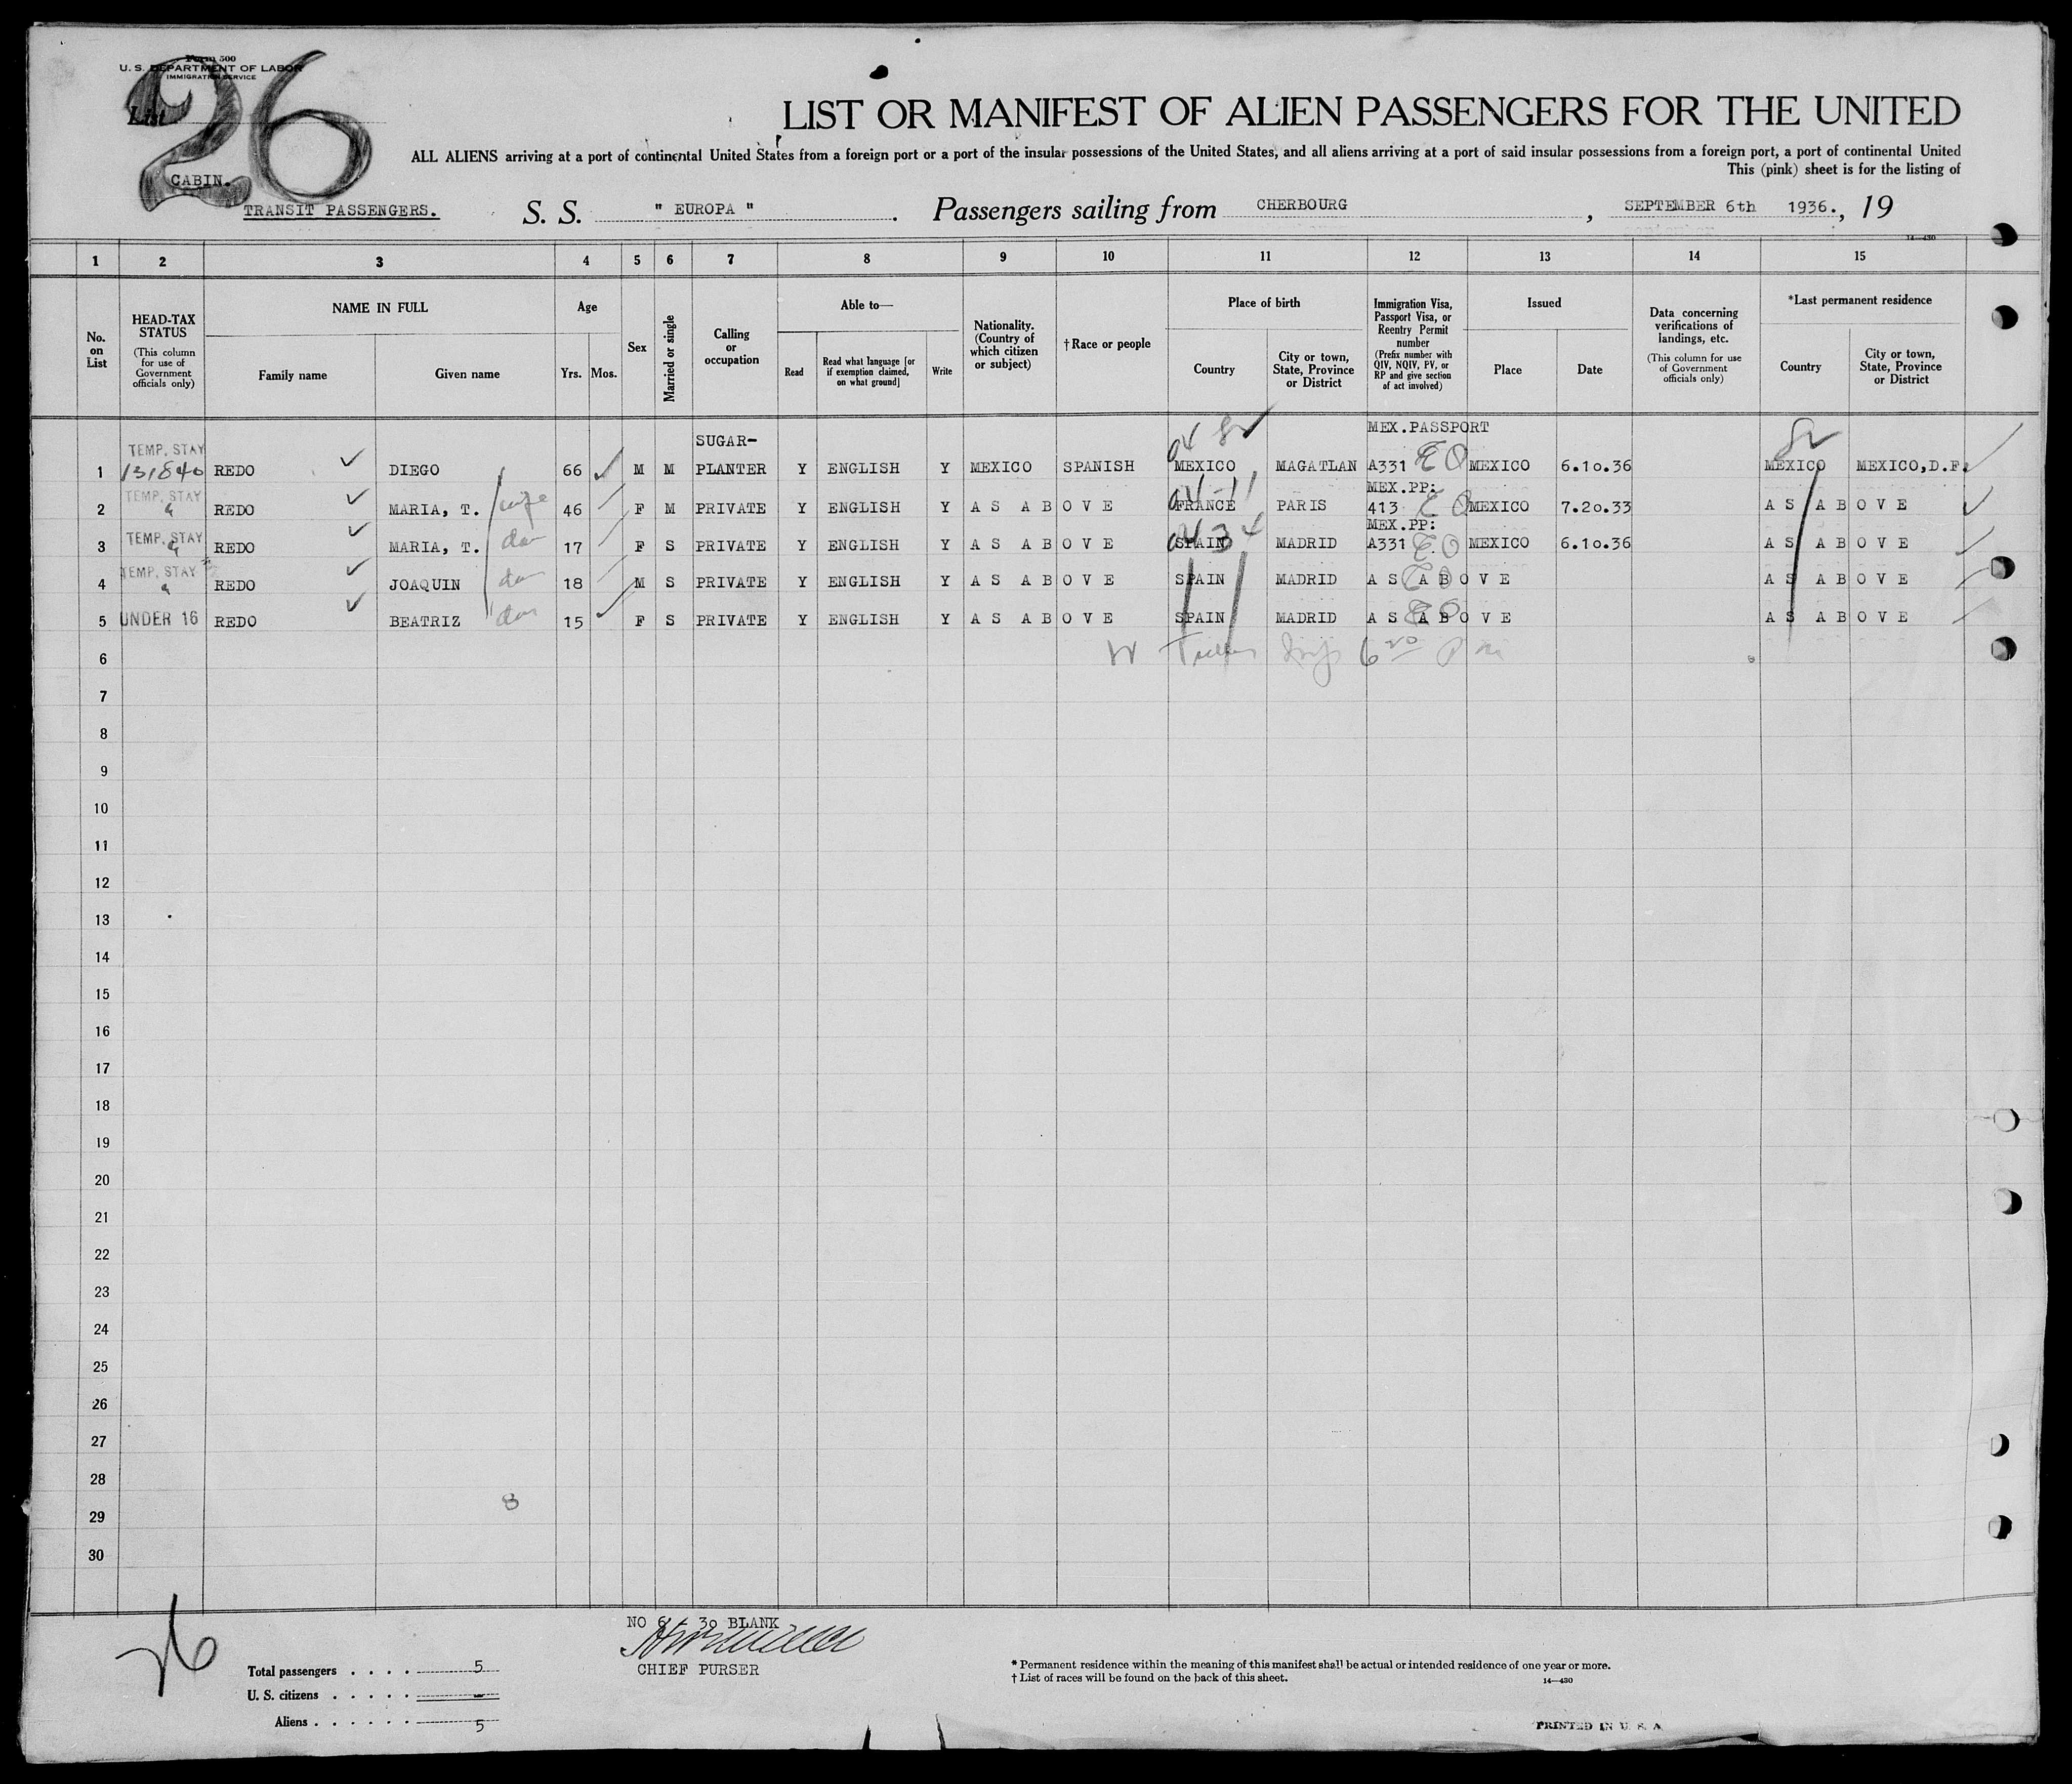 Form 500
U. S. DEPARTMENT OF LABOR
IMMIGRATION SERVICE
List
26
CABIN.
TRANSIT PASSENGERS.
LIST OR MANIFEST OF ALIEN PASSENGERS FOR THE UNITED
ALL ALIENS arriving at a port of continental United States from a foreign port or a port of the insular possessions of the United States, and all aliens arriving at a port of said insular possessions from a foreign port, a port of continental United
This (pink) sheet is for the listing of
S. S. " EUROPA " . Passengers sailing from CHERBOURG , SEPTEMBER 6th 1936., 19
14—430
1 2 3 4 5 6 7 8 9 10 11 12 13 14 15
No. on List
HEAD-TAX STATUS
(This column for use of Government officials only)
NAME IN FULL
Family name
Given name
Age
Yrs. Mos.
Sex
Married or single
Calling or occupation
Able to—
Read
Read what language [or if exemption claimed, on what ground]
Write
Nationality. (Country of which citizen or subject)
†Race or people
Place of birth
Country
City or town, State, Province or District
Immigration Visa, Passport Visa, or Reentry Permit number
(Prefix number with QIV, NQIV, PV, or RP and give section of act involved)
Issued
Place
Date
Data concerning verifications of landings, etc.
(This column for use of Government officials only)
*Last permanent residence
Country
City or town, State, Province or District
TEMP. STAY SUGAR- MEX.PASSPORT
1 131840 REDO DIEGO 66 M M PLANTER Y ENGLISH Y MEXICO SPANISH MEXICO MAGATLAN A331 EO MEXICO 6.1o.36 MEXICO MEXICO,D.F.
TEMP. STAY MEX.PP:
2 REDO MARIA, T. wife 46 F M PRIVATE Y ENGLISH Y AS ABOVE FRANCE PARIS 413 EO MEXICO 7.2o.33 AS ABOVE
TEMP. STAY MEX.PP:
3 REDO MARIA, T. dau 17 F S PRIVATE Y ENGLISH Y AS ABOVE SPAIN MADRID A331 EO MEXICO 6.1o.36 AS ABOVE
TEMP. STAY
4 REDO JOAQUIN dau 18 M S PRIVATE Y ENGLISH Y AS ABOVE SPAIN MADRID AS ABOVE AS ABOVE
5 UNDER 16 REDO BEATRIZ dau 15 F S PRIVATE Y ENGLISH Y AS ABOVE SPAIN MADRID AS ABOVE AS ABOVE
6
7
8
9
10
11
12
13
14
15
16
17
18
19
20
21
22
23
24
25
26
27
28
8
29
30
26
NO 6 30 BLANK
CHIEF PURSER
Total passengers . . . . 5
U. S. citizens . . . . . —
Aliens . . . . . . 5
* Permanent residence within the meaning of this manifest shall be actual or intended residence of one year or more.
† List of races will be found on the back of this sheet.
14—430
PRINTED IN U. S. A.